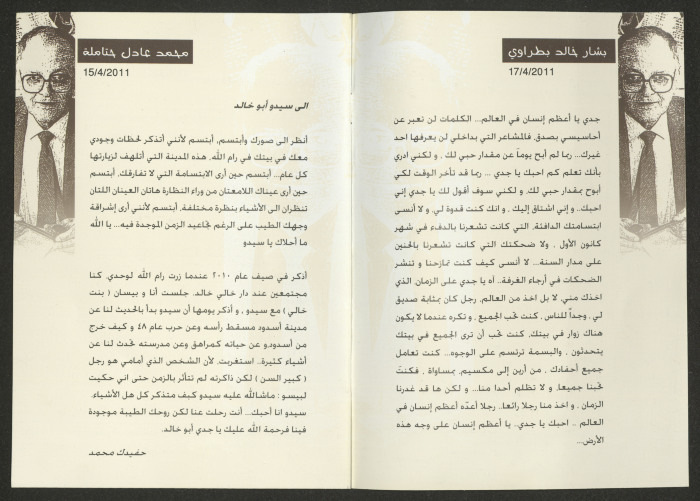 بشار خالد بطراوي
17/4/2011
جدي يا أعظم إنسان في العالم... الكلمات لن تعبر عن
أحاسيسي بصدق, فالمشاعر التي بداخلي لن يعرفها احد
غيرك... ربما لم أبح يوماً عن مقدار حبي لك , و لكني ادري
بأنك تعلم كم احبك يا جدي ... ربما قد تأخر الوقت لكي
أبوح بمقدار حبي لك, و لكني سوف أقول لك يا جدي إني
احبك.. و إني اشتاق إليك , و انك كنت قدوة لي, و لا أنسى
ابتسامتك الدافئة, التي كانت تشعرنا بالدفء في شهر
كانون الأول , ولا ضحكتك التي كانت تشعرنا بالحنين
على مدار السنة... لا أنسى كيف كنت تمازحنا و تنشر
الضحكات في أرجاء الغرفة.. آه يا جدي على الزمان, الذي
اخذك مني, لا بل اخذ من العالم, رجل كان بمثابة صديق
لي , وجداً للناس , كنت تحب الجميع , و تكره عندما لا يكون
هناك زوار في بيتك, كنت تحب أن ترى الجميع في بيتك
يتحدثون , والبسمة ترتسم على الوجوه... كنت تعامل
جميع أحفادك , من أرين إلى مكسيم, بمساواة , فكنت
تحبنا جميعا, و لا تظلم أحدا منا... و لكن ها قد غدرنا
الزمان , و اخذ منا رجلا رائعا.. رجلا أعدّه أعظم إنسان في
العالم .. احبك يا جدي.. يا أعظم إنسان على وجه هذه
الأرض...
محمد عادل حناملة
15/4/2011
الى سيدو أبو خالد
أنظر الى صورك وأبتسم, أبتسم لأنني أتذكر لحظات وجودي
معك في بيتك في رام الله, هذه المدينة التي أتلهف لزيارتها
كل عام... أبتسم حين أرى الابتسامة التي لا تفارقك, أبتسم
حين أرى عيناك اللامعتان من وراء النظارة هاتان العينان اللتان
تنظران الى الأشياء بنظرة مختلفة, أبتسم لأنني أرى إشراقة
وجهك الطيب على الرغم تجاعيد الزمن الموجدة فيه... يا الله
ما أحلاك يا سيدو
أذكر في صيف عام ٢٠١٠ عندما زرت رام الله لوحدي, كنا
مجتمعين عند دار خالي خالد, جلست أنا و بيسان ( بنت
خالي ) مع سيدو , و أذكر يومها أن سيدو بدأ بالحديث لنا عن
مدينة أسدود مسقط رأسه وعن حرب عام ٤٨ و كيف خرج
من أسدود,و عن حياته كمراهق وعن مدرسته تحدث لنا عن
أشياء كثيرة.. استغربت, لأن الشخص الذي أمامي هو رجل
( كبير السن ) لكن ذاكرته لم تتأثر بالزمن حتى اني حكيت
لبيسو : ماشالله عليه سيدو كيف متذكر كل هل الأشياء,
سيدو انا أحبك... أنت رحلت عنا لكن روحك الطيبة موجودة
فينا فرحمة الله عليك يا جدي أبو خالد.
حفيدك محمد